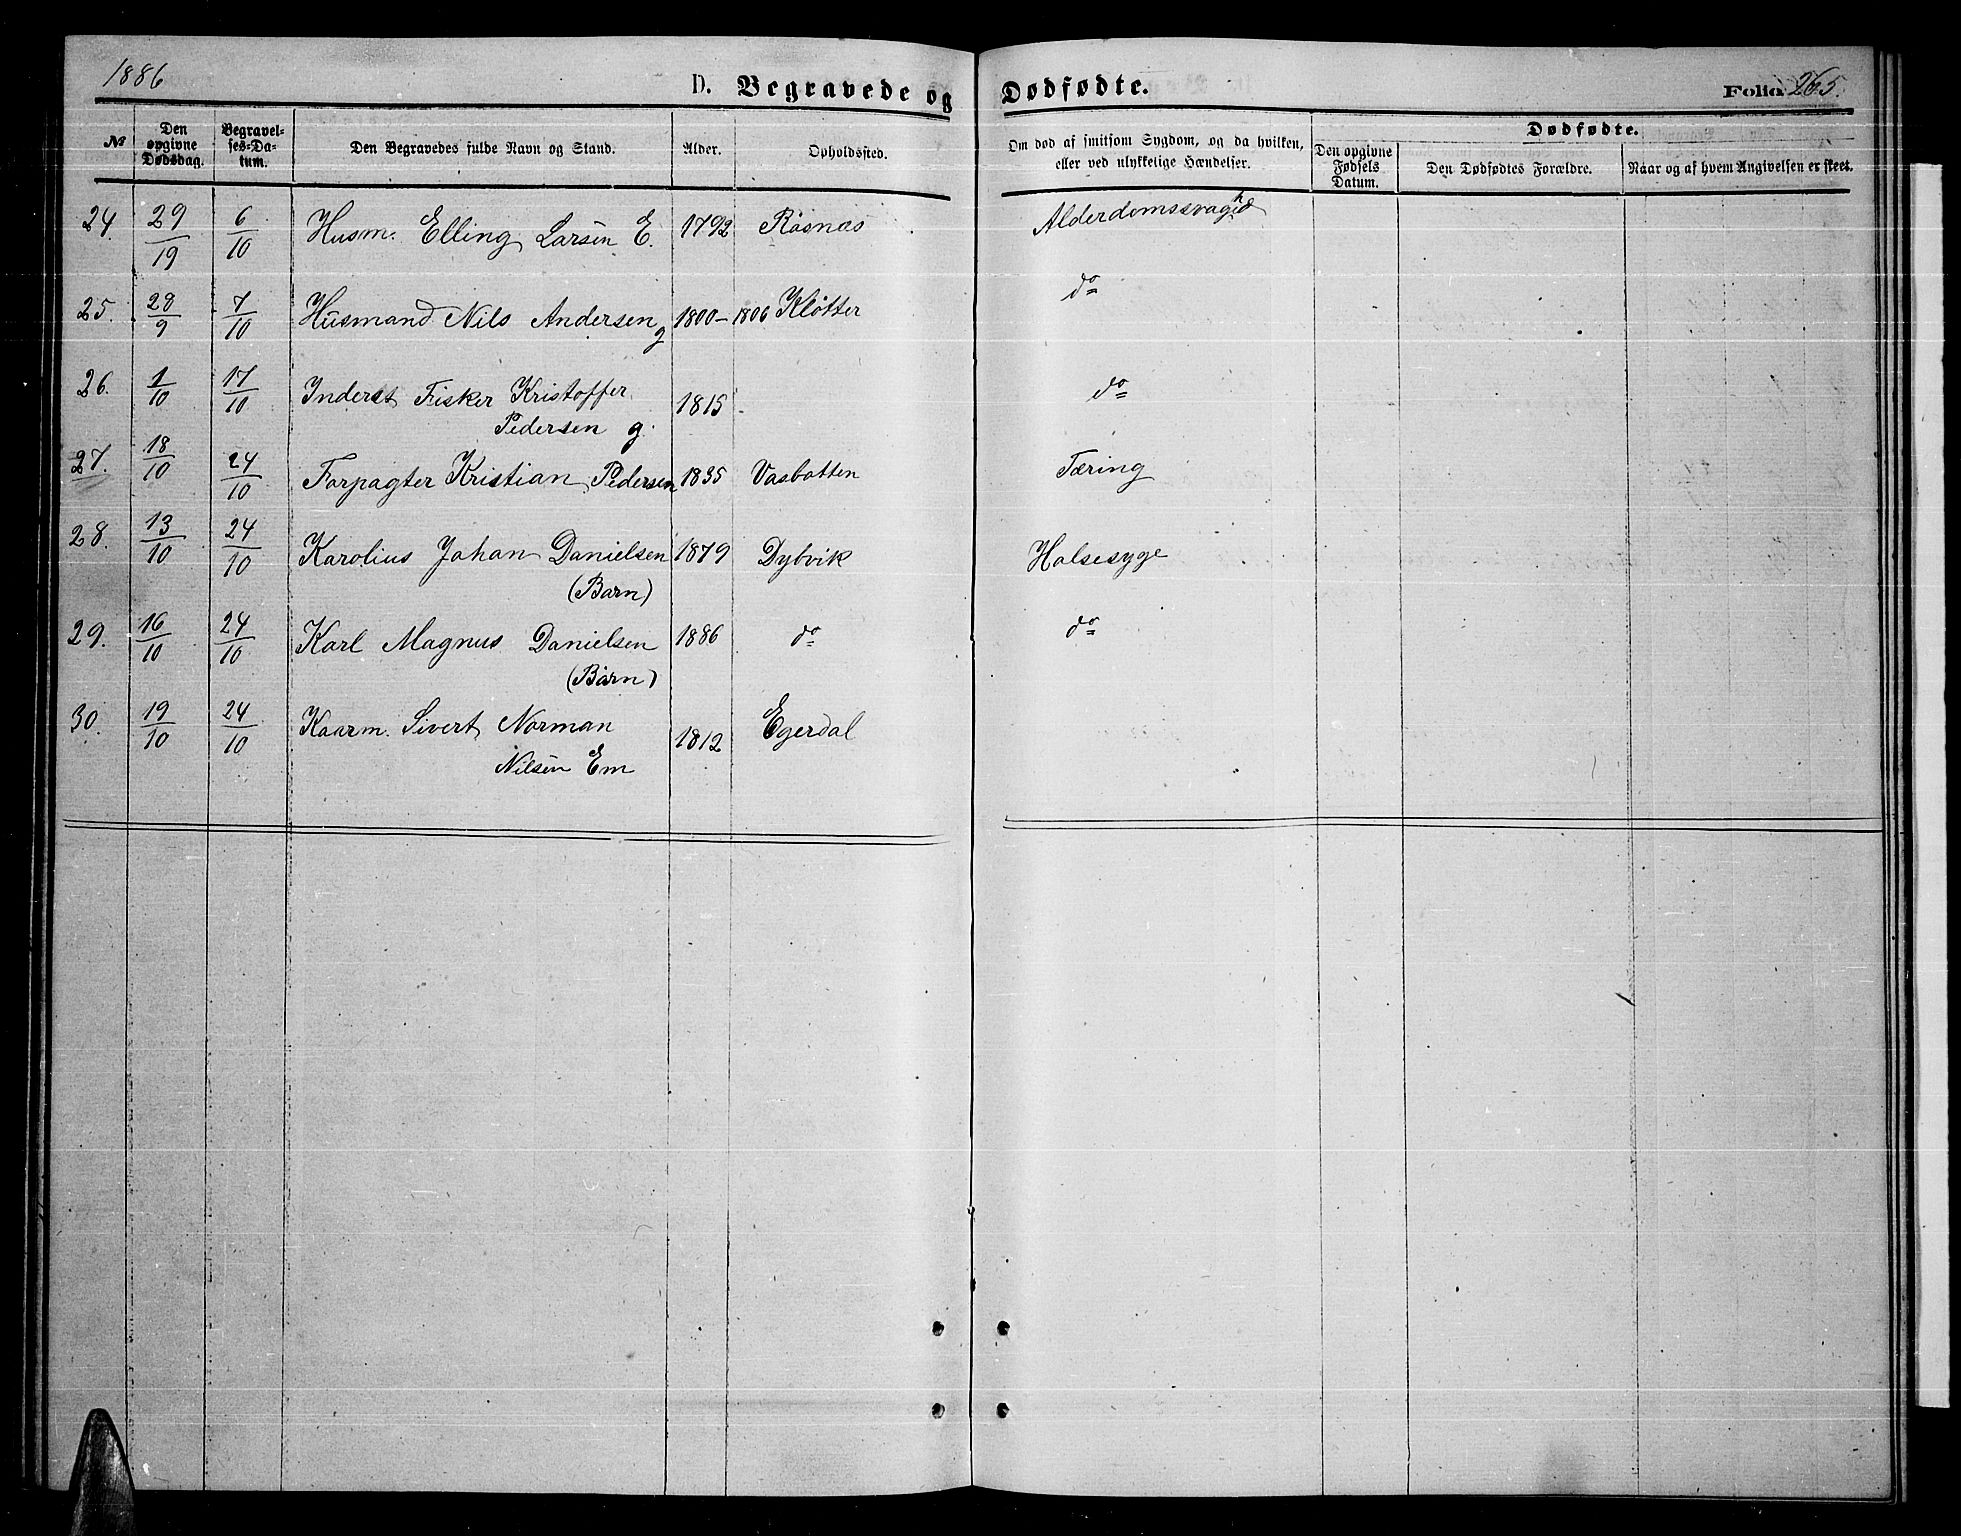 1886 D. Begravede og Dødfødte. Folio 265.
№ Den opgivne Dødsdag. Begravelses-Datum. Den Begravedes fulde Navn og Stand. Alder. Opholdssted. Om død af smitsom Sygdom, og da hvilken, eller ved ulykkelige Hændelser. Dødfødte. Den opgivne Fødsels Datum. Den Dødfødtes Forældre. Naar og af hvem Angivelsen er skeet.
24. 29/19 6/10 Husm. Elling Larsen E. 1792 Røsnæs Alderdomssvaghd
25. 28/9 7/10 Husmand Nils Andersen g 1800-1806 Kløtter do
26. 1/10 17/10 Inderst Fisker Kristoffer 1815 do
Pedersen g.
27. 18/10 24/10 Forpagter Kristian Pedersen 1835 Vasbotten Tæring
28. 13/10 24/10 Karolius Johan Danielsen 1879 Dybvik Halsesyge
(Barn)
29. 16/10 24/10 Karl Magnus Danielsen 1886 do do
(Barn)
30. 19/10 24/10 Kaarm. Sivert Norman 1812 Egerdal
Nilsen Em